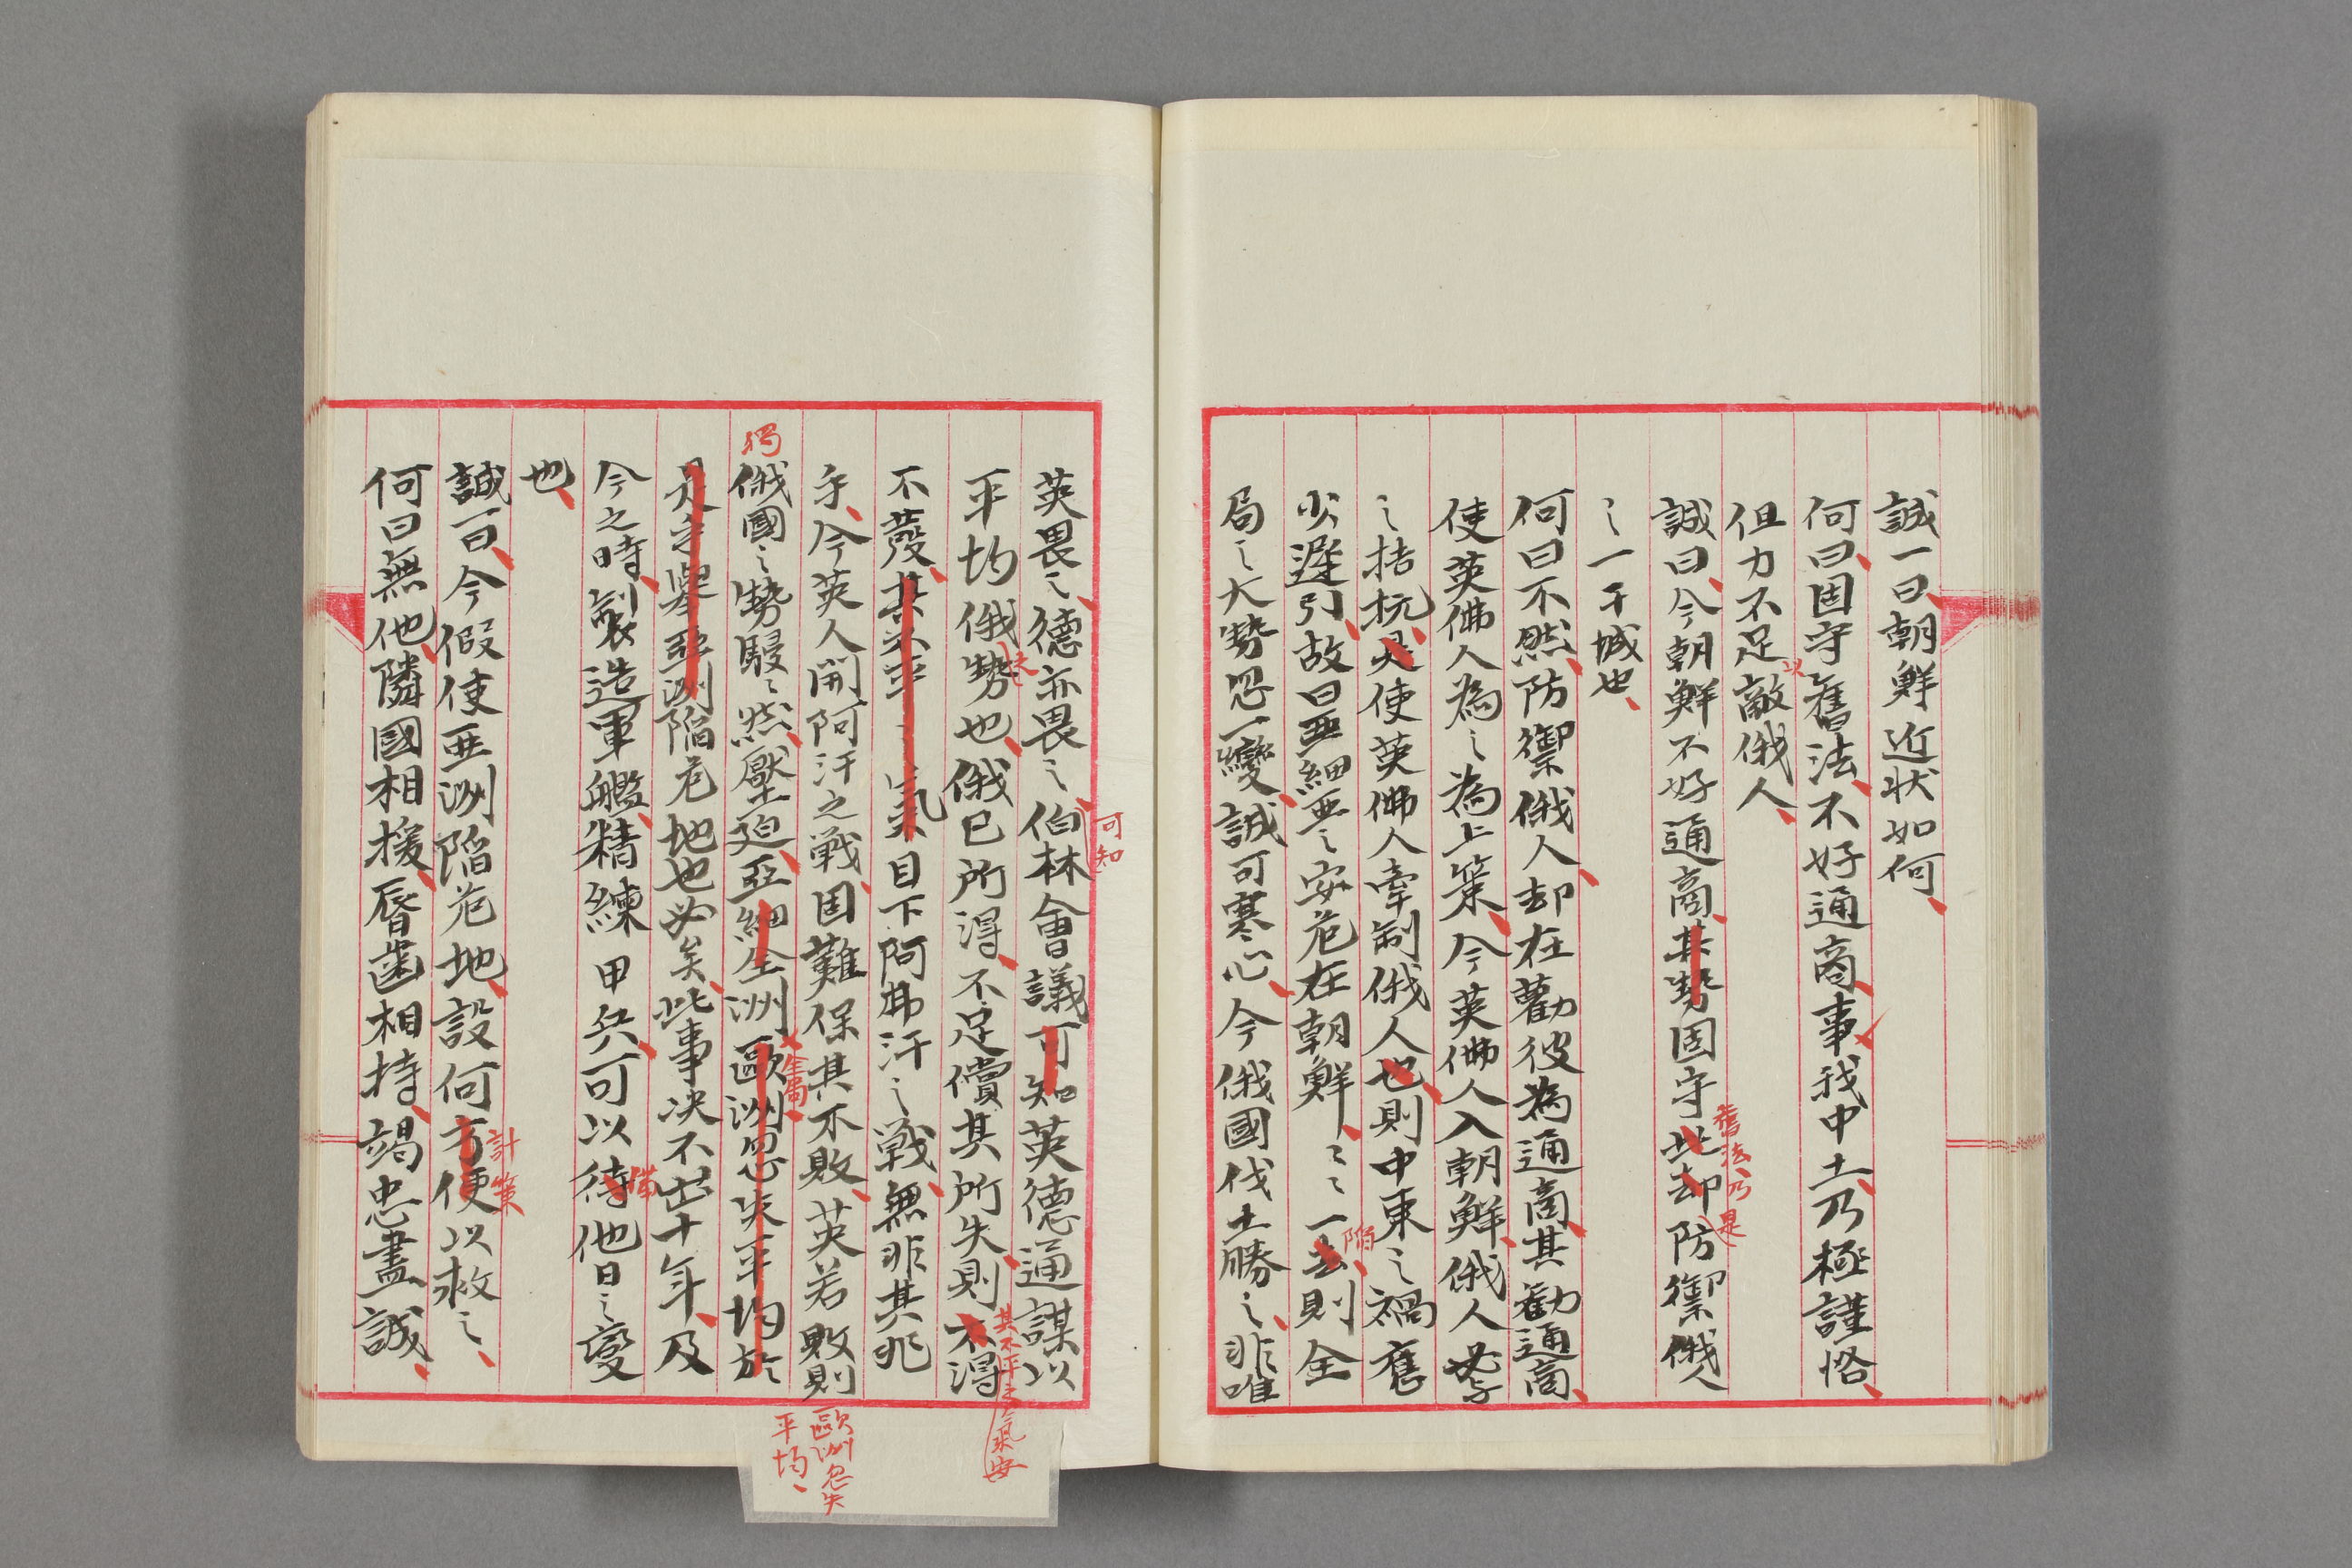 誠一曰朝鮮近狀如何、
何曰、固守舊法、不好通商、事我中土、乃極謹恪、
但力不足以敵俄人、
誠曰、今朝鮮不好通商、其勢固守此却防禦俄人
舊法、乃是
之一干城也、
何曰不然、防禦俄人、却在勸彼為通商、其勸通商、
使英佛人為之為上策、今英佛人入朝鮮、俄人必孚
之拮抗、是使英佛人牽制俄人也、則中東之禍舊
少遲引、故曰亞細亞之安危在朝鮮、々々一去則全
陷
局之大勢忽一變、誠可寒心、今俄國伐土勝之、非唯
英畏之、德亦畏之、伯林會議可知英德通謀以
可知
平均俄勢也、俄已所得、不足償其所失、則不得
其不平之氣安
不發、其不平之氣目下阿弗汗之戰、無非其兆
乎、今英人開阿汗之戰、固難保其不敗、英若敗則
歐洲忽失
平均、
獨
俄國之勢駸々然、壓迫亞細全洲歐洲忽失平均於
全局、
是乎擧亞洲陷危地也必矣、此事决不出十年、及
今之時、製造軍艦、精練甲兵、可以待他日之變
備
也、
誠一曰、今假使亞洲陷危地、設何方便以救之、
計策
何曰無他、隣國相援、脣齒相持、竭忠盡誠、